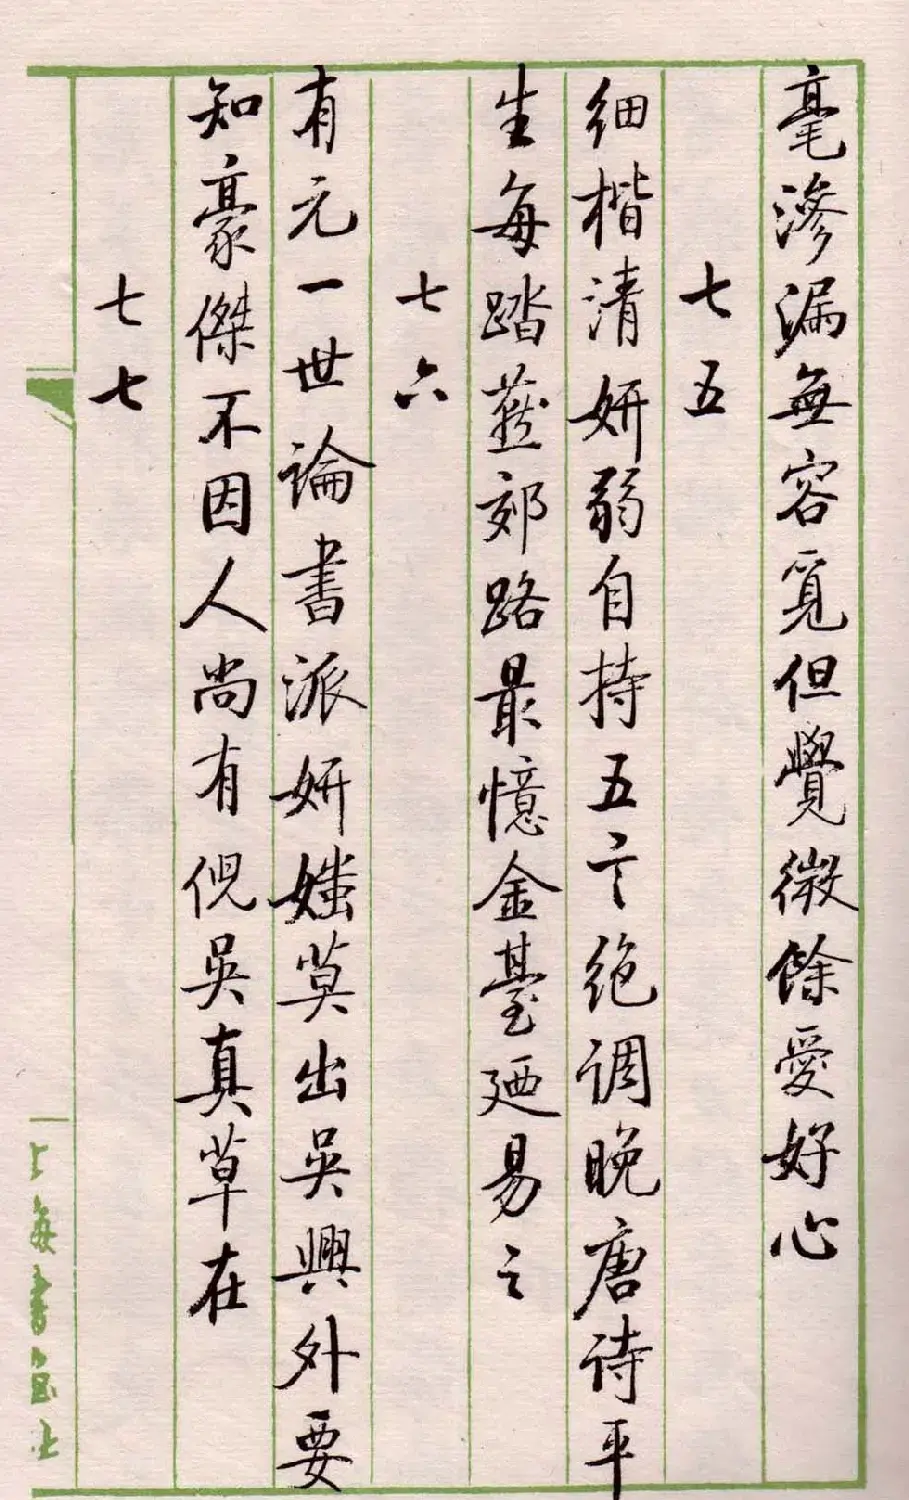 毫滲漏無容覓但覺微餘愛好心
七五
細楷清妍弱自持五言绝调晚唐诗平
生每踏燕郊路最憶金臺廼易之
七六
有元一世論書派妍媸莫出吳興外要
知豪傑不因人尚有倪吳真草在
七七
上海書畫社